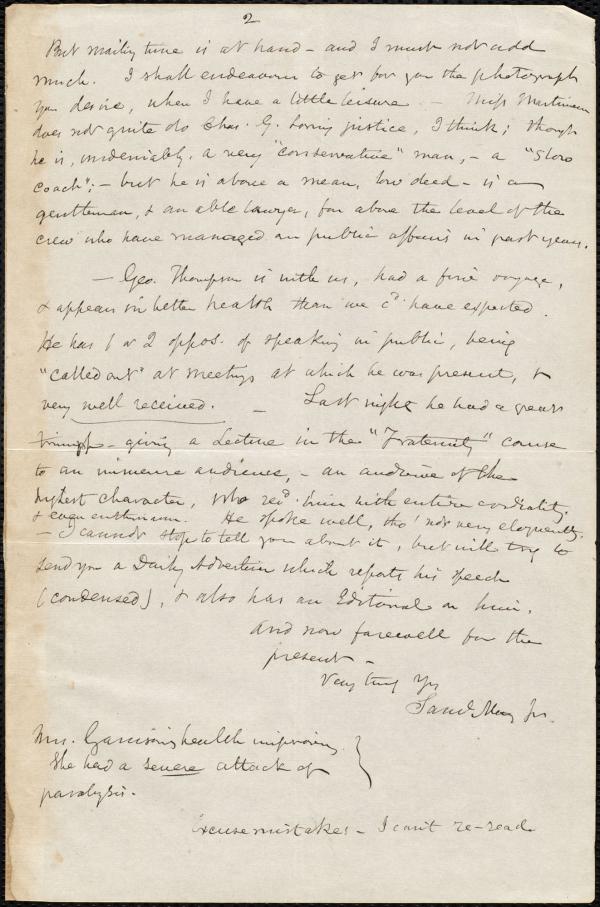 2
But mailing time is at hand - and I must not add
much. I shall endeavour to get for you the photograph
you desire, when I have a little leisure. - Miss Martineau
does not quite do Chas. G. Loring justice, I think; though
he is, undeniably, a very "conservative" man, - a "slow
coach"; - but he is above a mean, low deed - is a
gentleman, & an able lawyer, far above the level of the
crew who have managed our public affairs in past years.
- Geo. Thompson is with us, had a fine voyage,
& appears in better health than we cd. have expected.
He has 1 or 2 oppos. of speaking in public, being
"called out" at meetings at which he was present, &
very well received. - Last night he had a great
triumph - giving a Lecture in the "Fraternity" course
to an immense audience, - an audience of the
highest character, who recd. him with entire cordiality,
& even enthusiasm. He spoke well, tho' not very eloquently.
- I cannot stop to tell you about it, but will try to
send you a Daily Advertiser which reports his speech
(condensed), & also has an Editorial on him.
And now farewell for the
present -
Very truly Yrs
Saml. May Jr.
Mrs. Garrison's health improving.
She had a severe attack of
paralysis.
Excuse mistakes - I can't re-read